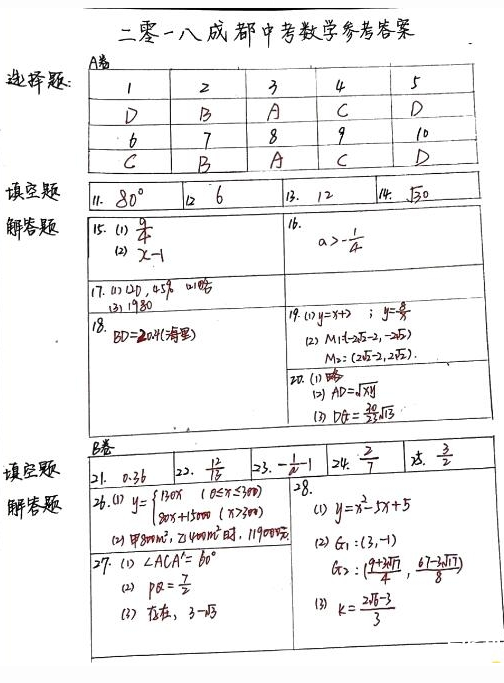 二零一八成都中考数学参考答案
A卷
选择题:
1 2 3 4 5
D B A C D
6 7 8 9 10
C B A C D
填空题
11. 80° 12 6 13. 12 14. √30
解答题
15. (1) 9/4
(2) x-1
16.
a>-1/4
17. (1) 120, 45% (2)略
(3) 1980
18.
BD=20.4(海里)
19. (1) y=x+2 ; y=8/x
(2) M1:(-2√2-2, -2√2)
M2: (2√2-2, 2√2).
20. (1) 略
(2) AD=√xy
(3) DG=30/23√13
B卷
填空题
21. 0.36 22. 12/13 23. -1/a-1 24. 2/7 25. 3/2
解答题
26. (1) y={130x (0≤x≤300)
80x+15000 (x>300)
(2) 甲800m², 乙400m²时, 119000元.
27. (1) ∠ACA'=60°
(2) PQ=7/2
(3) 存在, 3-√3
28.
(1) y=x²-5x+5
(2) G1:(3,-1)
G2:(9+3√17/4, 67-3√17/8)
(3) K=2√6-3/3